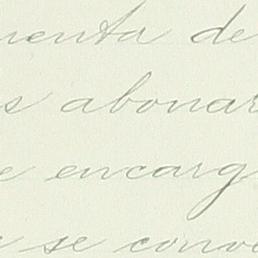 menta de
s abonar
e encarg
se conve